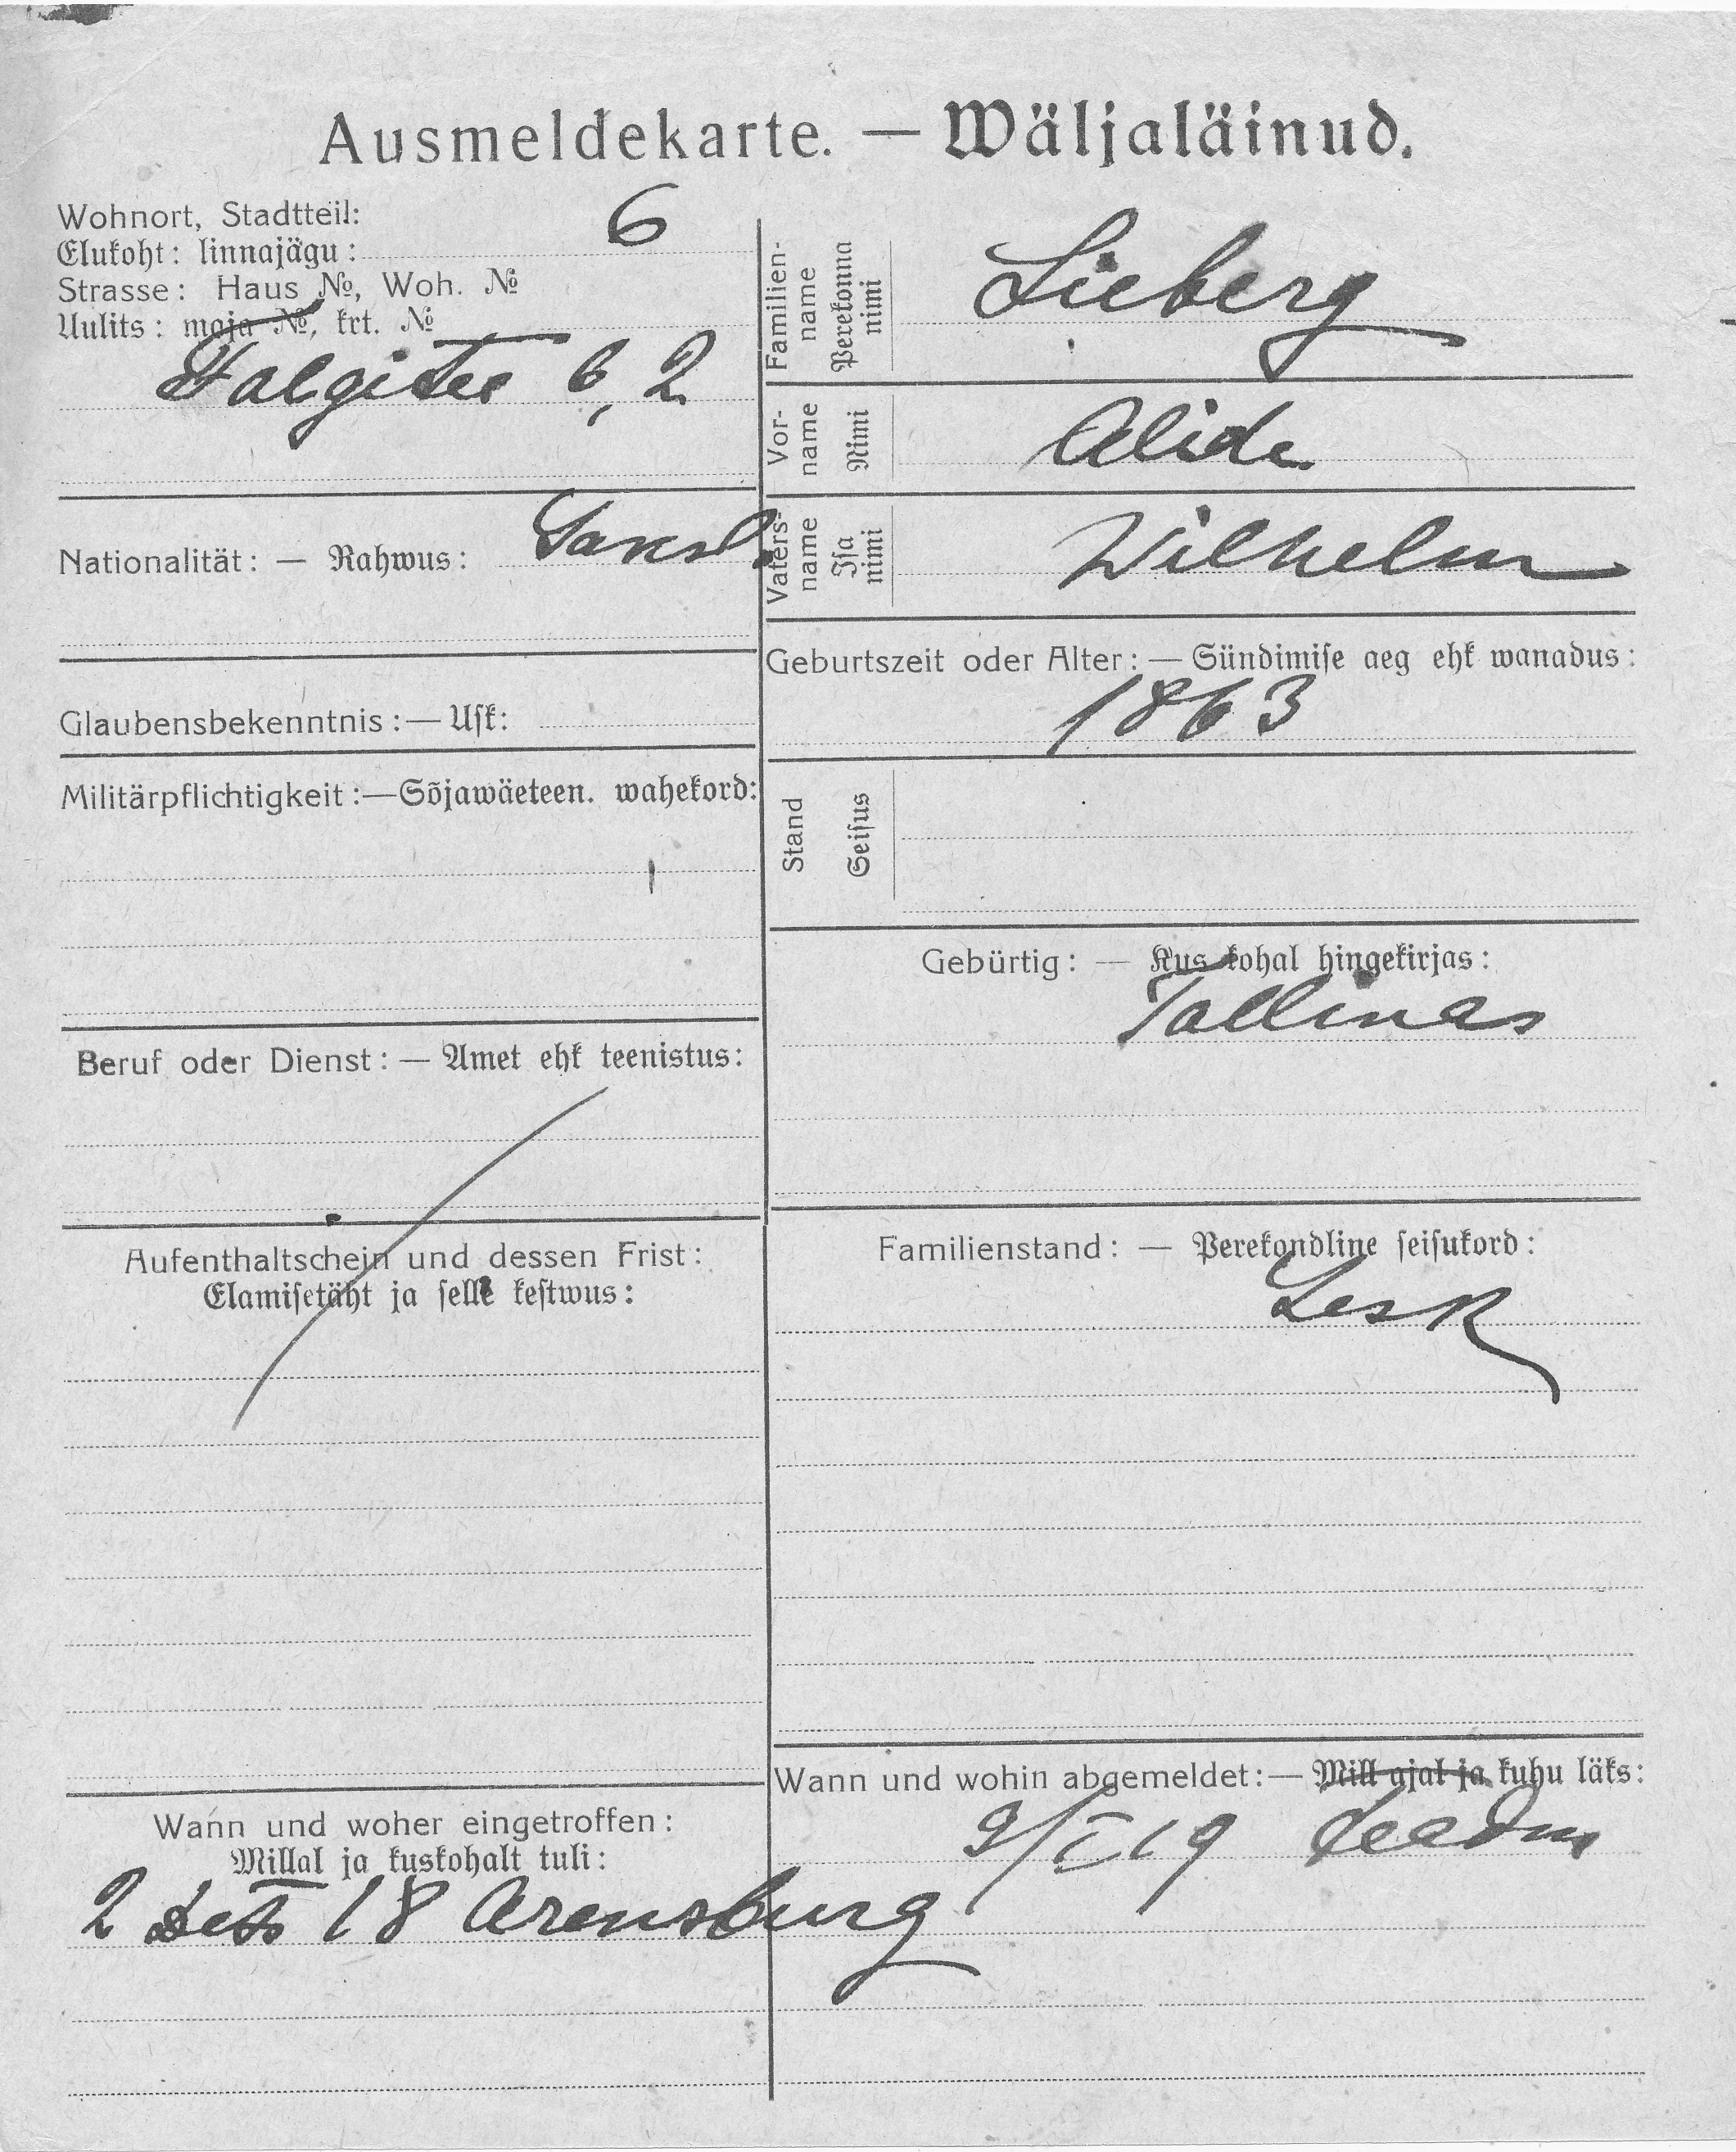 Ausmeldekarte. — Wäljaläinud.
Wohnort, Stadtteil:
Elukoht: linnajägu: 6
Strasse: Haus №, Woh. №
Uulits: maja №, krt. №
Falgitee 6, 2
Nationalität: — Rahwus: Saksl.
Glaubensbekenntnis: — Usk:
Militärpflichtigkeit: — Sõjawäeteen. wahekord:
Beruf oder Dienst: — Amet ehk teenistus:
Aufenthaltschein und dessen Frist:
Elamisetäht ja selle kestwus:
Wann und woher eingetroffen:
Millal ja kuskohalt tuli:
2 Dets 18 Arensburg
Familien-
name
Perekonna
nimi
Lieberg
Vor-
name
Nimi
Alide
Vaters-
name
Isa
nimi
Wilhelm
Geburtszeit oder Alter: — Sündimise aeg ehk wanadus:
1863
Stand
Seisus
Gebürtig: — Kus kohal hingekirjas:
Tallinas
Familienstand: — Perekondline seisukord:
Lesk
Wann und wohin abgemeldet: — Mill ajal ja kuhu läks:
9/I 19